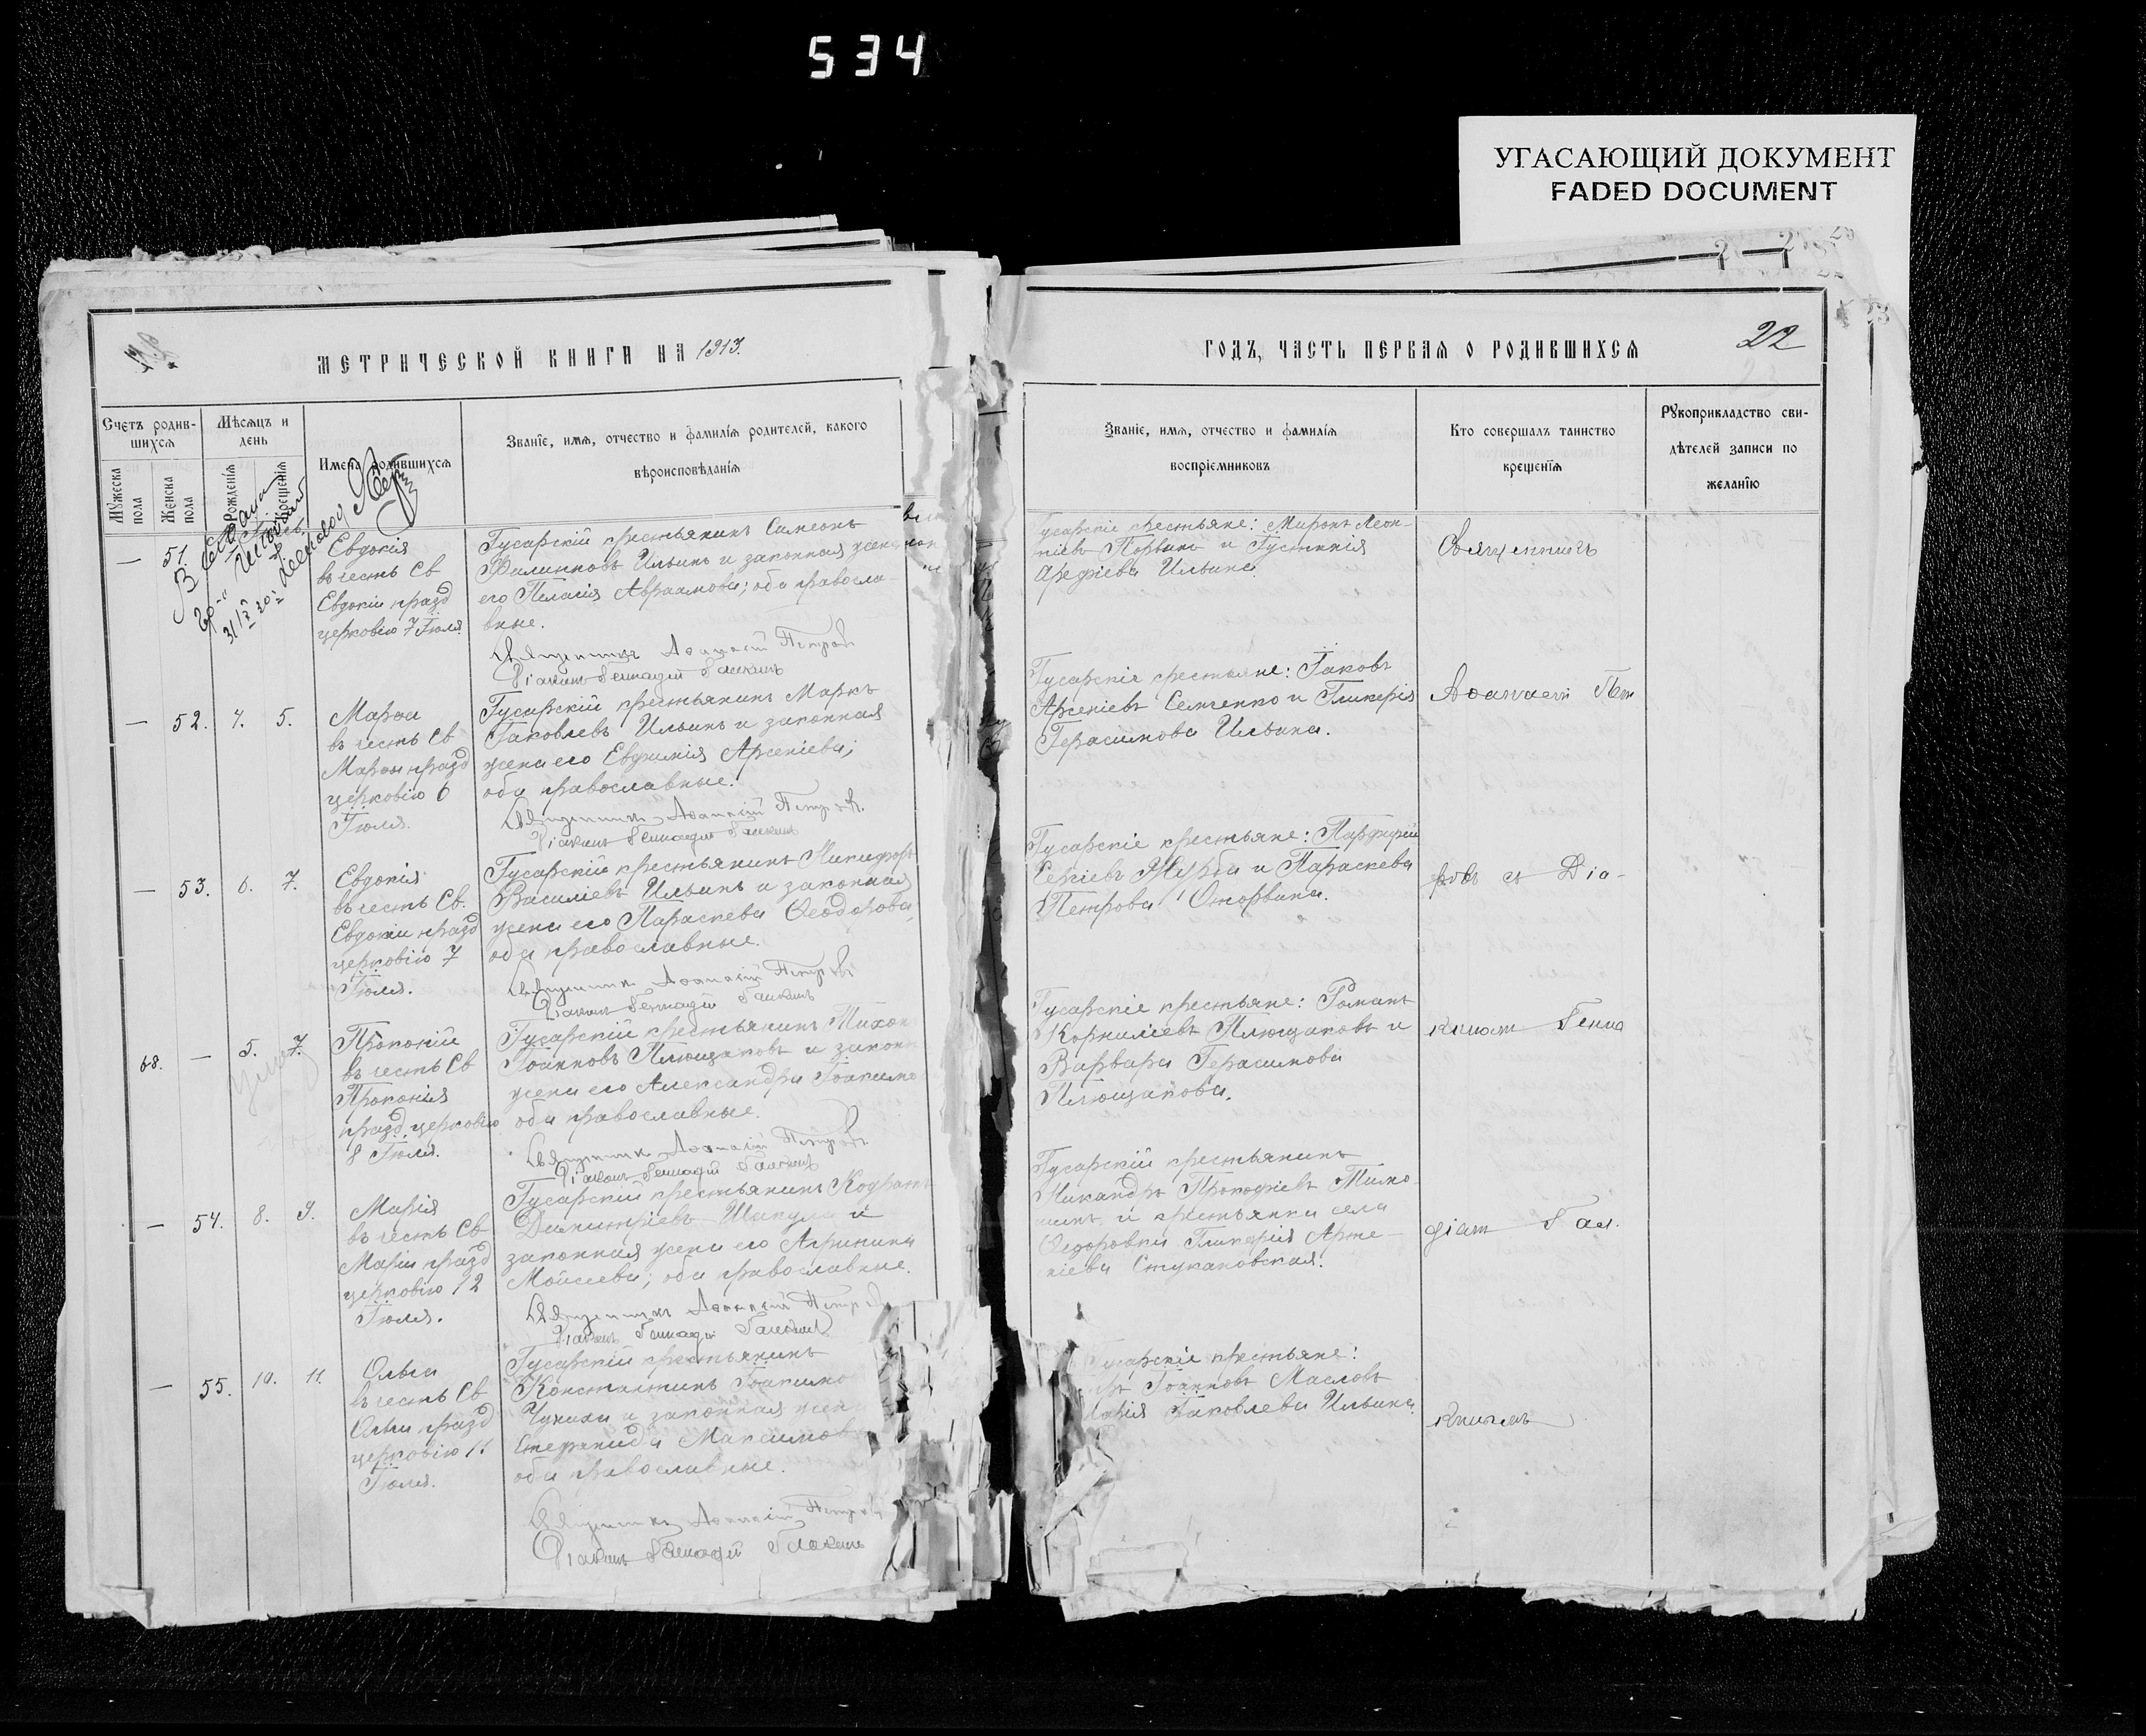 534
УГАСАЮЩИЙ ДОКУМЕНТ
FADED DOCUMENT
МЕТРИЧЕСКОЙ КНИГИ НА 1913.
Счетъ родив-
шихся
Мѣсяцъ и
день
Мужеска
пола
Женска
пола
Рожденія
Крещенія
Имена родившихся
Званіе, имя, отчество и фамилія родителей, какого
вѣроисповѣданія
— 51.
Евдокія
въ честь Св
Евдокіи празд
церковію 7 Іюля
Гусарскій крестьянинъ Симеонъ
Филипповъ Ильинъ и законная жена
его Пелагія Авраамова; оба правосла-
вные.
Священникъ Аѳанасій Петровъ
Діаконъ Геннадій Галкинъ
— 52. 4. 5.
Марѳа
въ честь Св
Марѳы празд
церковію 6
Іюля.
Гусарскій крестьянинъ Маркъ
Іаковлевъ Ильинъ и законная
жена его Евфимія Арсеніева;
оба православные.
Священникъ Аѳанасій Петровъ.
Діаконъ Геннадій Галкинъ
— 53. 6. 7.
Евдокія
въ честь Св.
Евдокіи празд
церковію 7
Іюля.
Гусарскій крестьянинъ Никифоръ
Василіевъ Ильинъ и законная
жена его Параскева Ѳеодорова,
оба православные.
Священникъ Аѳанасій Петровъ
Діаконъ Геннадій Галкинъ
68. — 5. 7.
Прокопій
въ честь Св
Прокопія
празд. церковію
8 Іюля.
Гусарскій крестьянинъ Тихон
Іоанновъ Плющаковъ и законн
жена его Александра Іоакимо
оба православные.
Священникъ Аѳанасій Петровъ.
Діаконъ Геннадій Галкинъ
— 54. 8. 9.
Марія
въ честь Св
Маріи празд
церковію 12
Іюля.
Гусарскій крестьянинъ Кодратъ
Димитріевъ Шакула и
законная жена его Агрипина
Моисеева; оба православные.
Священникъ Аѳанасій Петровъ
Діаконъ Геннадій Галкинъ
— 55. 10. 11.
Ольга
въ честь Св
Ольги празд
церковію 11
Іюля.
Гусарскій крестьянинъ
Константинъ Іоакимо
и законная жена
Стефанида Максимов
оба православные.
Священникъ Аѳанасій Петровъ
Діаконъ Геннадій Галкинъ
ГОДЪ, ЧАСТЬ ПЕРВАЯ О РОДИВШИХСЯ
22
Званіе, имя, отчество и фамилія
воспріемниковъ
Кто совершалъ таинство
крещенія
Рукоприкладство сви-
дѣтелей записи по
желанію
Гусарскіе крестьяне: Миронъ Леон-
тіевъ и Іустинія
Арефіева Ильина.
Гусарскіе крестьяне: Іаковъ
Арсеніевъ Семченко и Гликерія
Герасимова Ильина.
Гусарскіе крестьяне: Парфирій
Сергіевъ Журба и Параскева
Петрова
Гусарскіе крестьяне: Романъ
Корниліевъ Плющаковъ и
Варвара Герасимова
Плющакова.
Гусарскій крестьянинъ
Никандръ Прокофіевъ Тимо
и крестьянка села
Ѳедоровки Гликерія Арте-
міева Стукановская.
Гусарскіе крестьяне:
Іоанновъ Масловъ
Марія Іаковлева Ильина.
Священникъ
Аѳанасій Пет
ровъ съ Діа-
кономъ Генна
діем Гал.
кинымъ